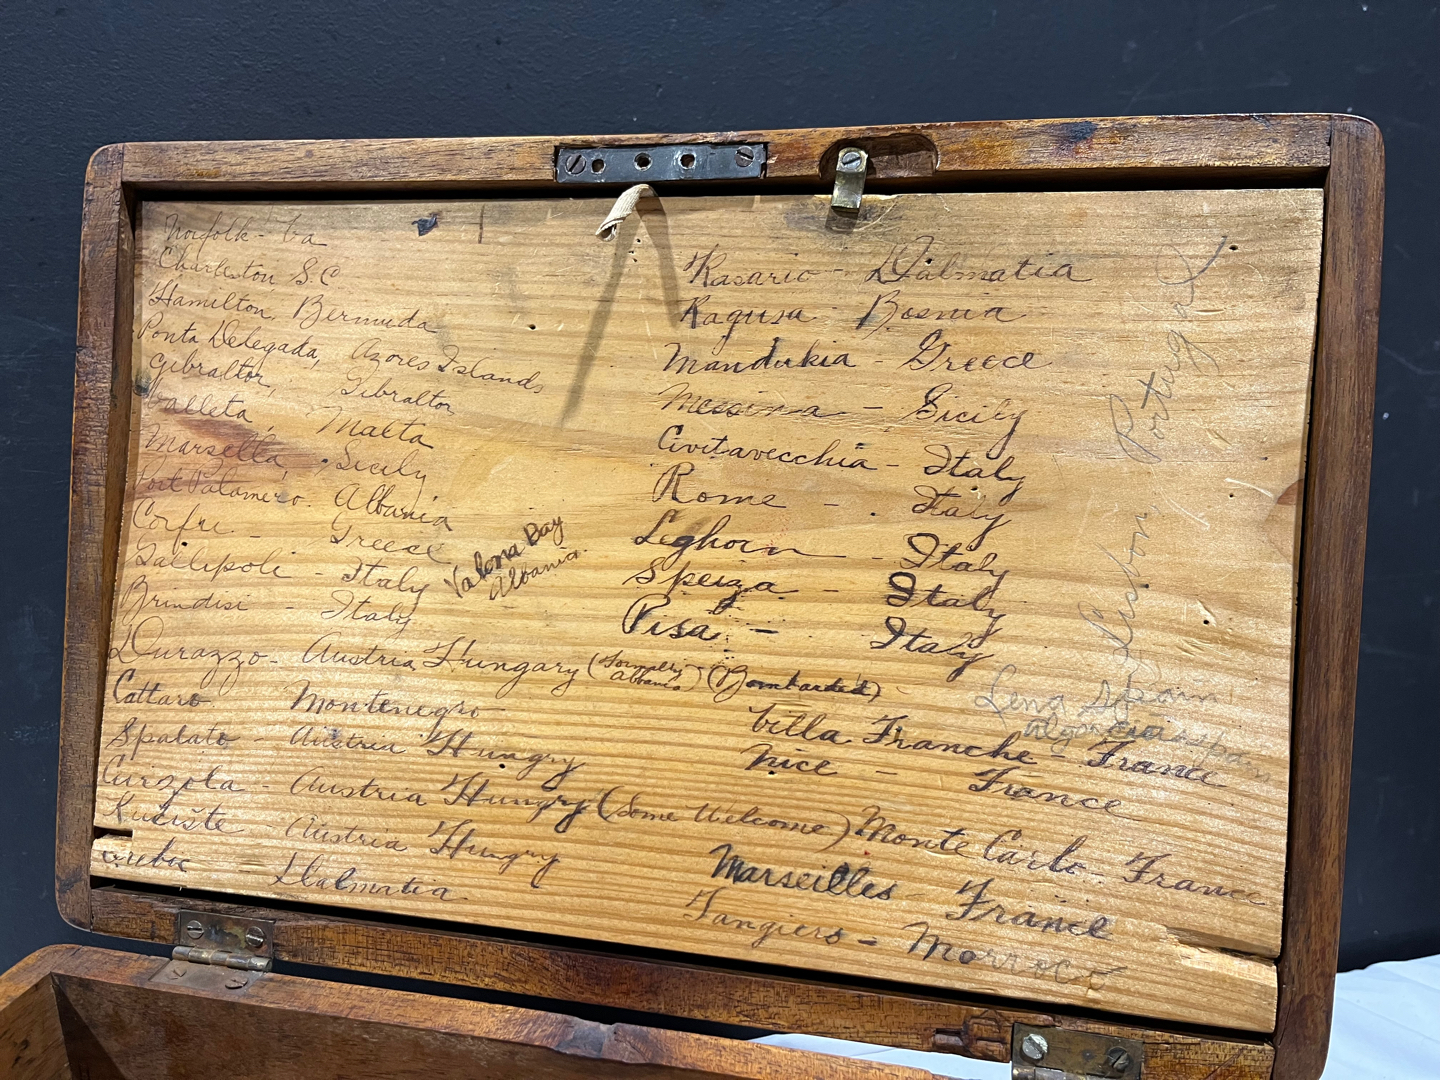 Norfolk - Va
Charleston S.C
Hamilton, Bermuda
Ponta Delegada, Azores Islands
Gibraltor, Gibraltor
Valleta, Malta
Marsella, Sicily
Port Palamero. Albania
Corfu - Greece
Gallipoli - Italy
Brindisi - Italy
Valona Bay
Albania.
Durazzo - Austria Hungary (formerly Albania) (Bombarded)
Cattaro Montenegro
Spalato - Austria Hungry
Curzola - Austria Hungry (Some Welcome)
Kuciste - Austria Hungry
Dalmatia
Rasario - Dalmatia
Ragusa - Bosnia
Mandukia - Greece
Messina - Sicily
Civitavecchia - Italy
Rome - Italy
Leghorn - Italy
Speiza - Italy
Pisa - Italy
Villa Franche - France
Nice - France
Monte Carlo - France
Marseilles - France
Tangiers - Morroco
Lisbon, Portugal
Spain
Spain